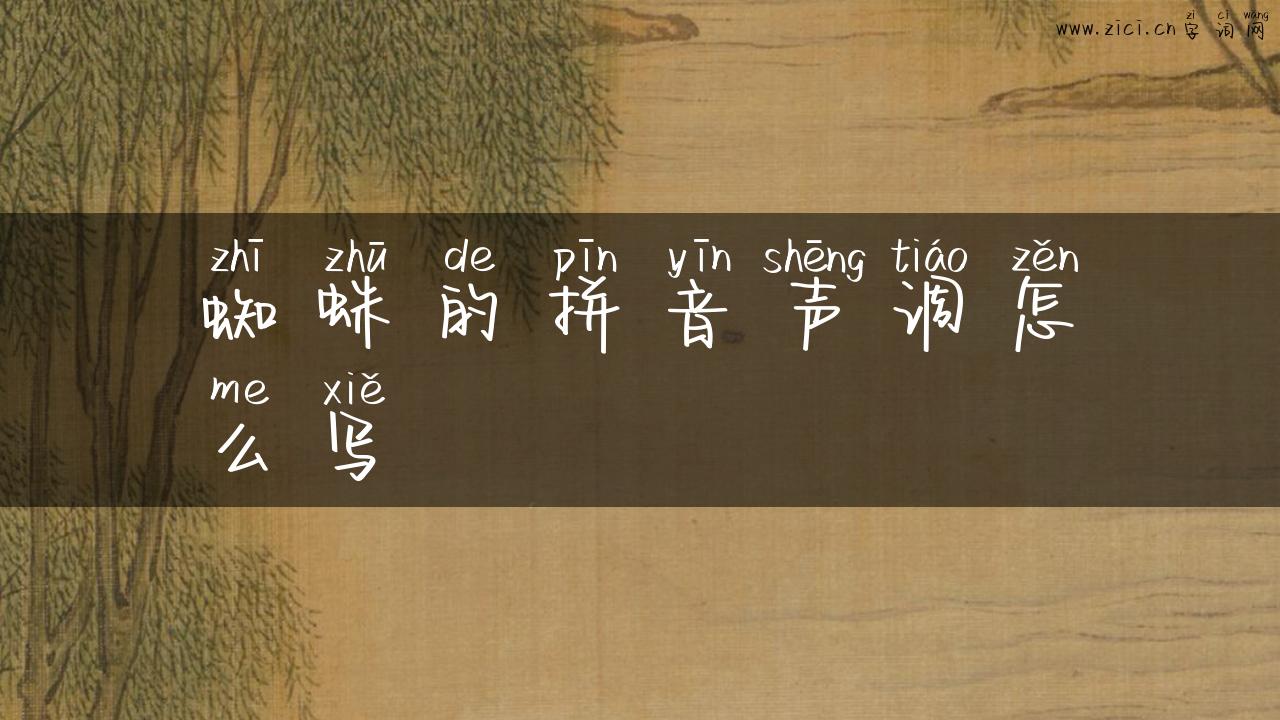 zì cí wǎng
www.zici.cn 字词网
zhī zhū de pīn yīn shēng tiáo zěn
蜘蛛的拼音声调怎
me xiě
么写